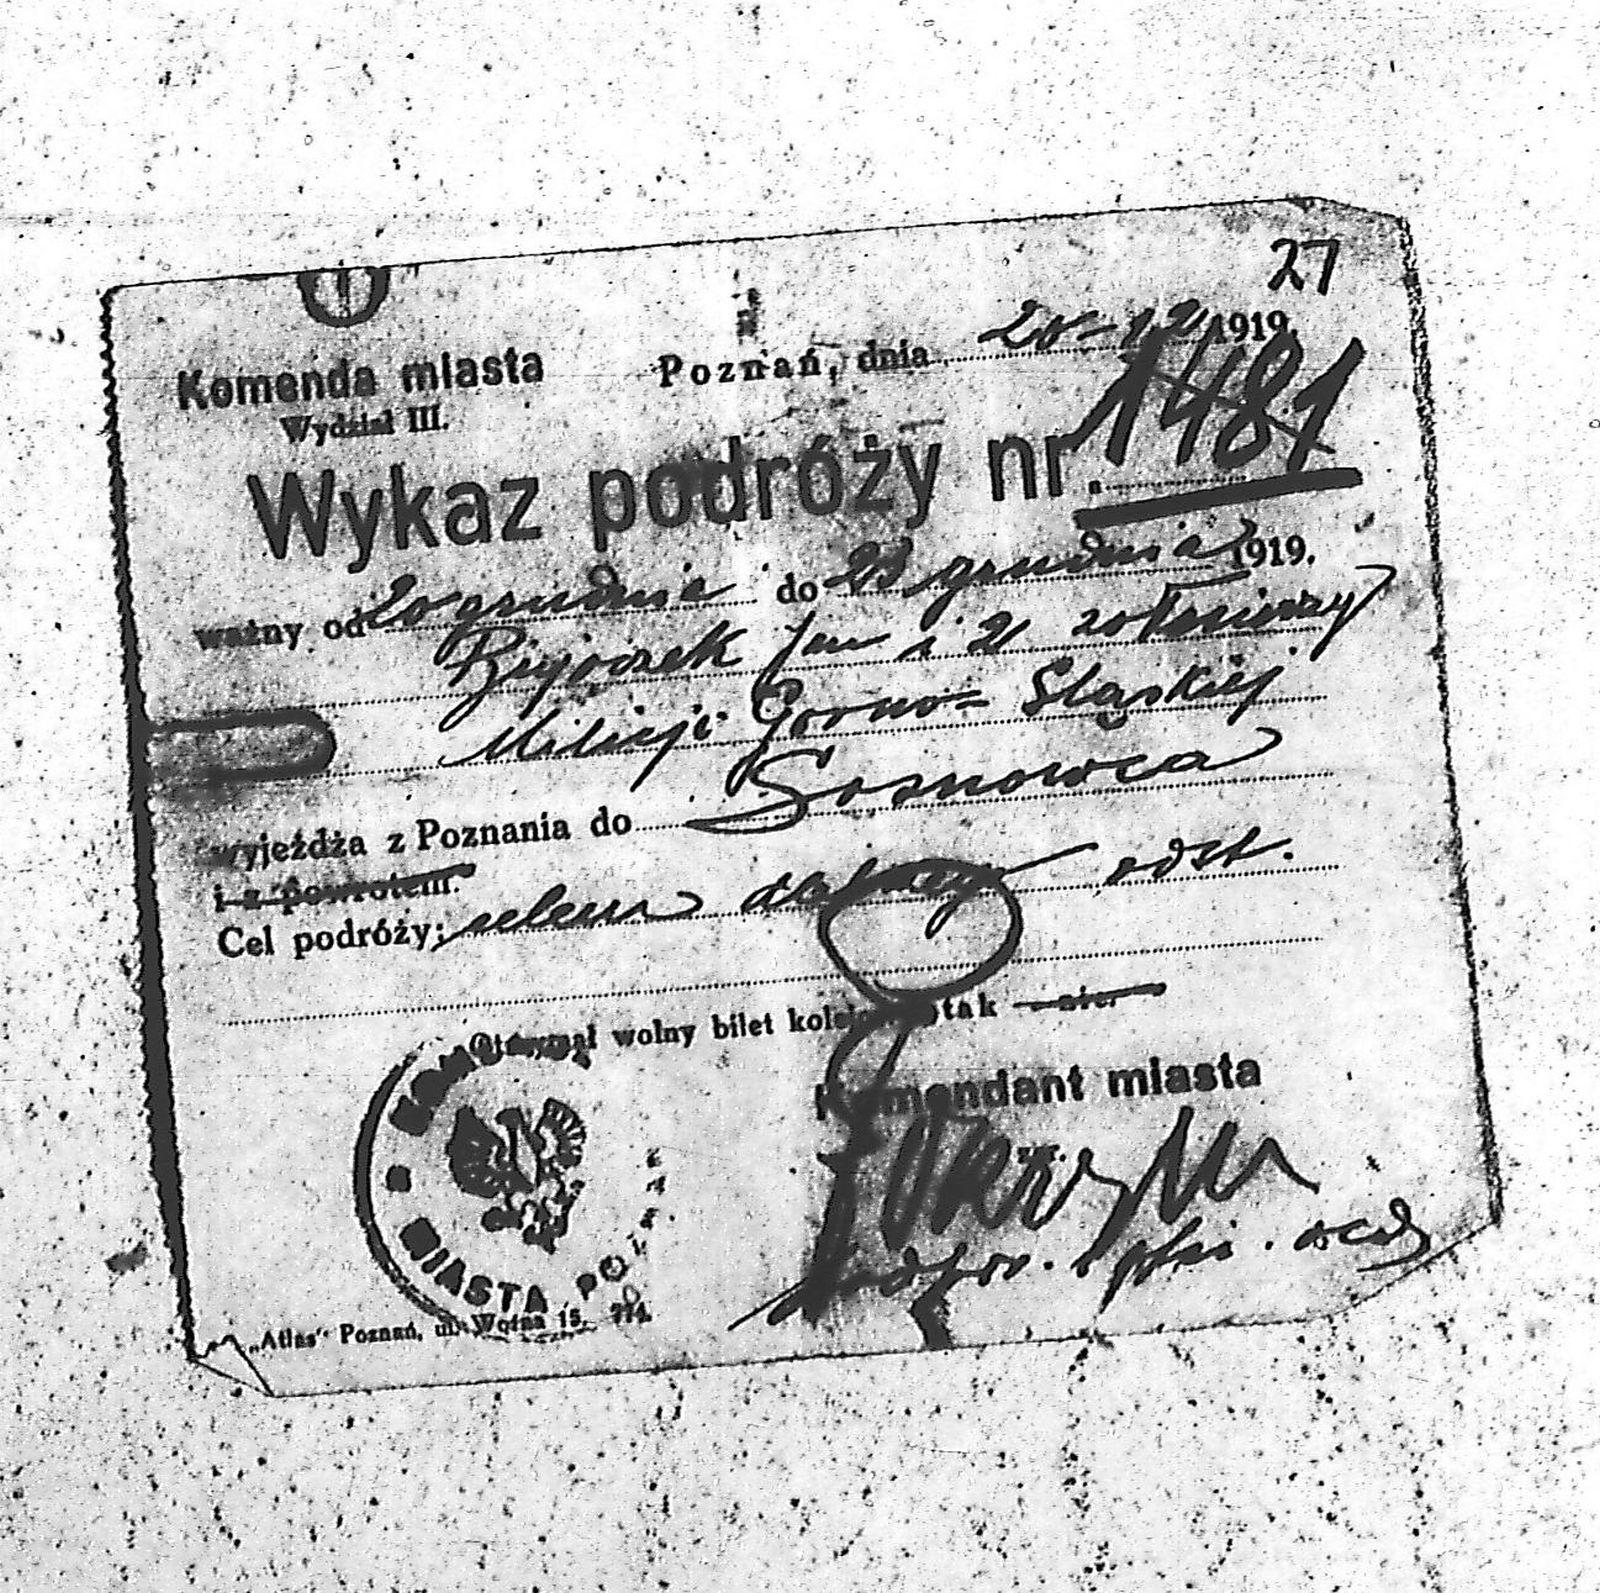 27
Komenda miasta Poznań, dnia 20-12 1919.
Wydział III.
Wykaz podróży nr. 1481
ważny od 20 grudnia do 23 grudnia 1919.
Jan i 21 żołnierzy
Milicji Gorno-Sląskiej
wyjeżdża z Poznania do Sosnowca
i z powrotem.
Cel podróży: celem dalszej odst.
Otrzymał wolny bilet kolejowy tak — nie.
Komendant miasta
MIASTA POZNAŃ
„Atlas" Poznań, ul. Wodna 15. 774.